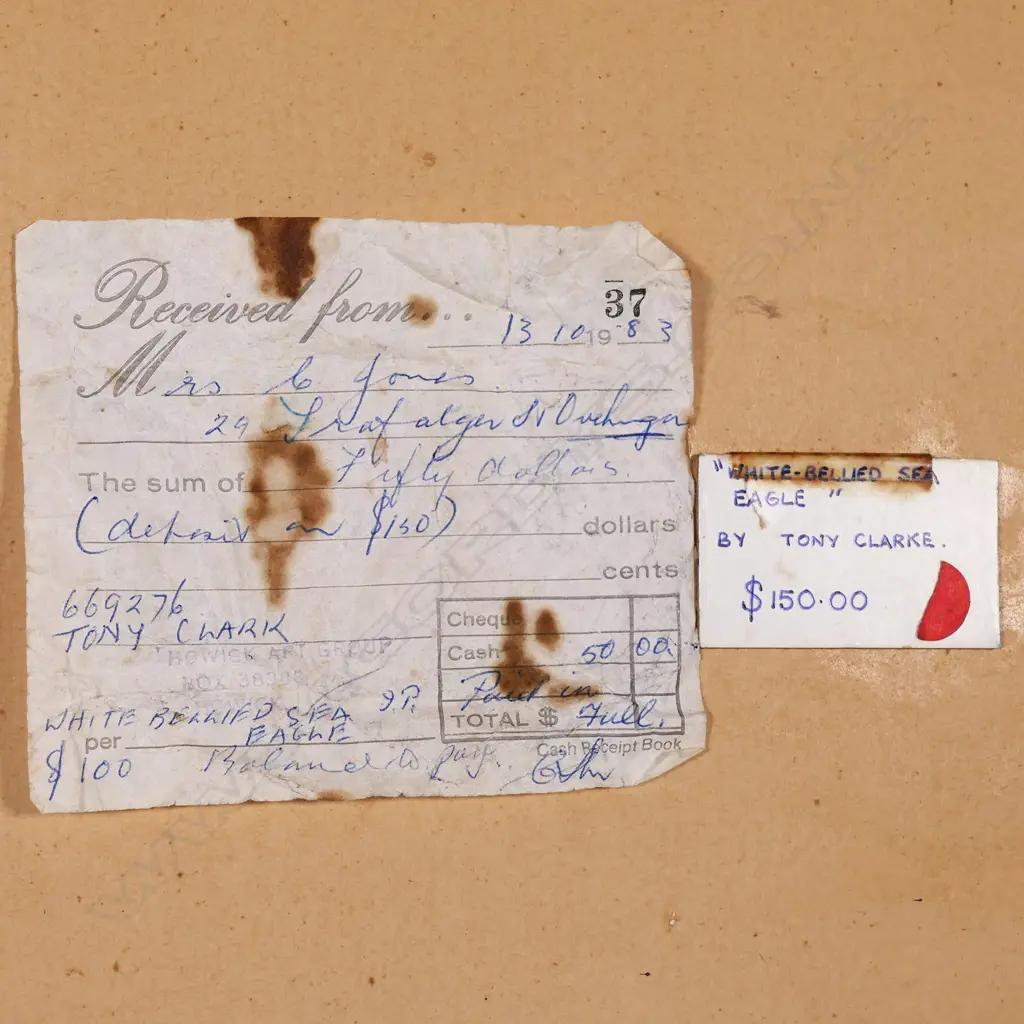 Received from...
37
13 10 1983
Mrs C Jones
29 Trafalger St Onehunga
The sum of Fifty dollars.
(deposit on $150) dollars
cents
669276
TONY CLARK
HOWICK ART GROUP
BOX 38
Cheque
Cash 50 00
Paid in
TOTAL $ Full.
WHITE BELLIED SEA
EAGLE
per
Cash Receipt Book
$100 Balance to pay.
"WHITE-BELLIED SEA
EAGLE "
BY TONY CLARKE.
$150.00